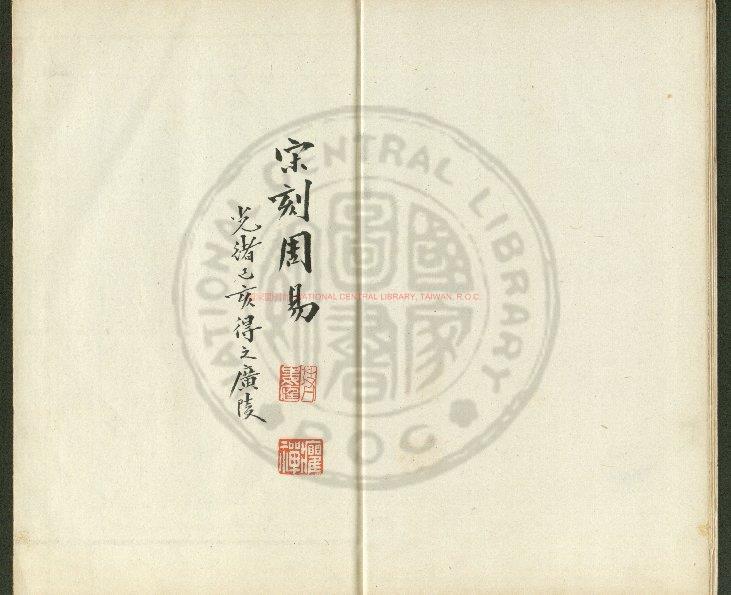 宋刻周易
光緒己亥得之廣陵
NATIONAL CENTRAL LIBRARY
國家圖書館
R.O.C.
國家圖書館 NATIONAL CENTRAL LIBRARY, TAIWAN, R.O.C.